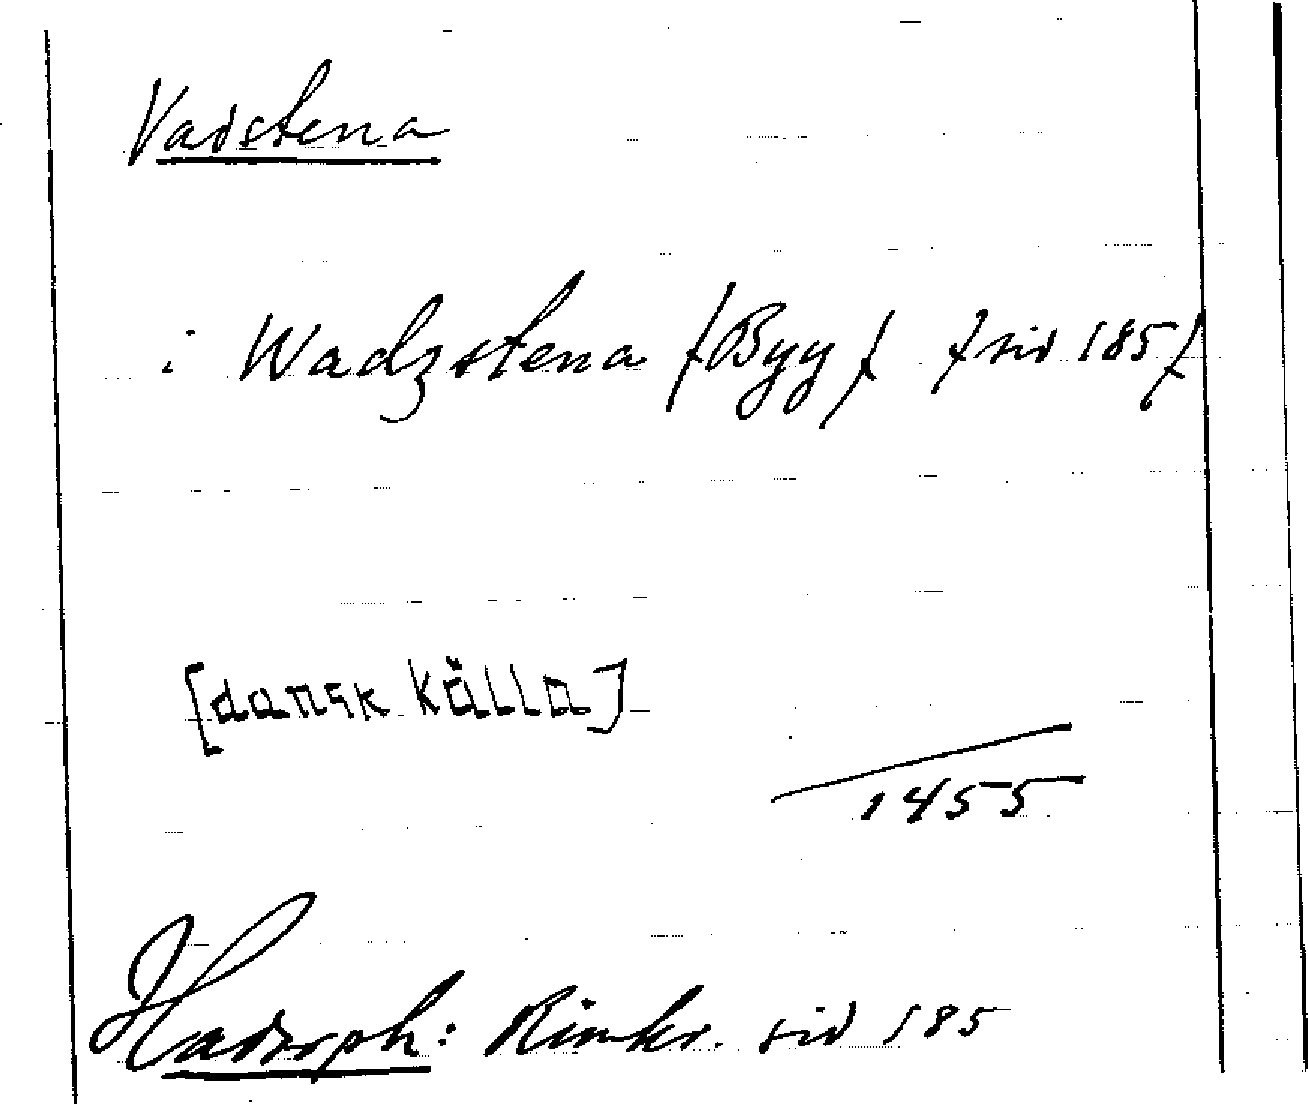 Vadstena
i Wadzstena /: Byy :/ /: sid 185 :/
[dansk källa]
1455
Hadorph: Rimkr. sid 185